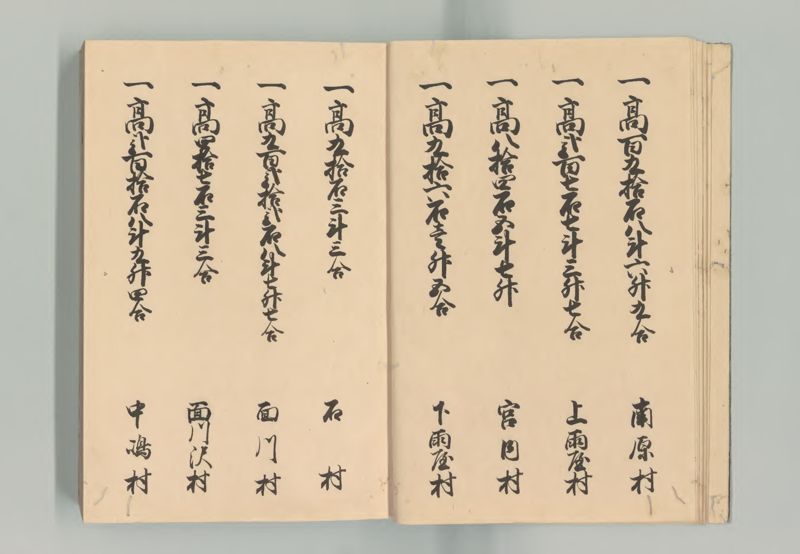 一高百九拾石八斗六升九合 南原村
一高弐百七石七斗三升七合 上雨屋村
一高八拾四石五斗七升 宮内村
一高九拾六石壱升五合 下雨屋村
一高九拾石三斗三合 石村
一高九百弐拾弐石八斗七升七合 面川村
一高四拾七石三斗三合 面川沢村
一高弐百拾石八斗九升四合 中嶋村